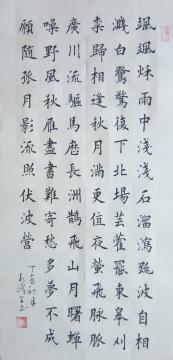 颯颯秋雨中淺淺石溜瀉跳波自相
濺白鷺驚復下北場芸藿罷東皋刈
黍歸相逢秋月滿更值夜螢飛脉脉
廣川流驅馬歷長洲鵲飛山月曙蟬
噪野風秋雁盡書難寄愁多夢不成
願隨孤月影流照伏波營
丁亥秋月